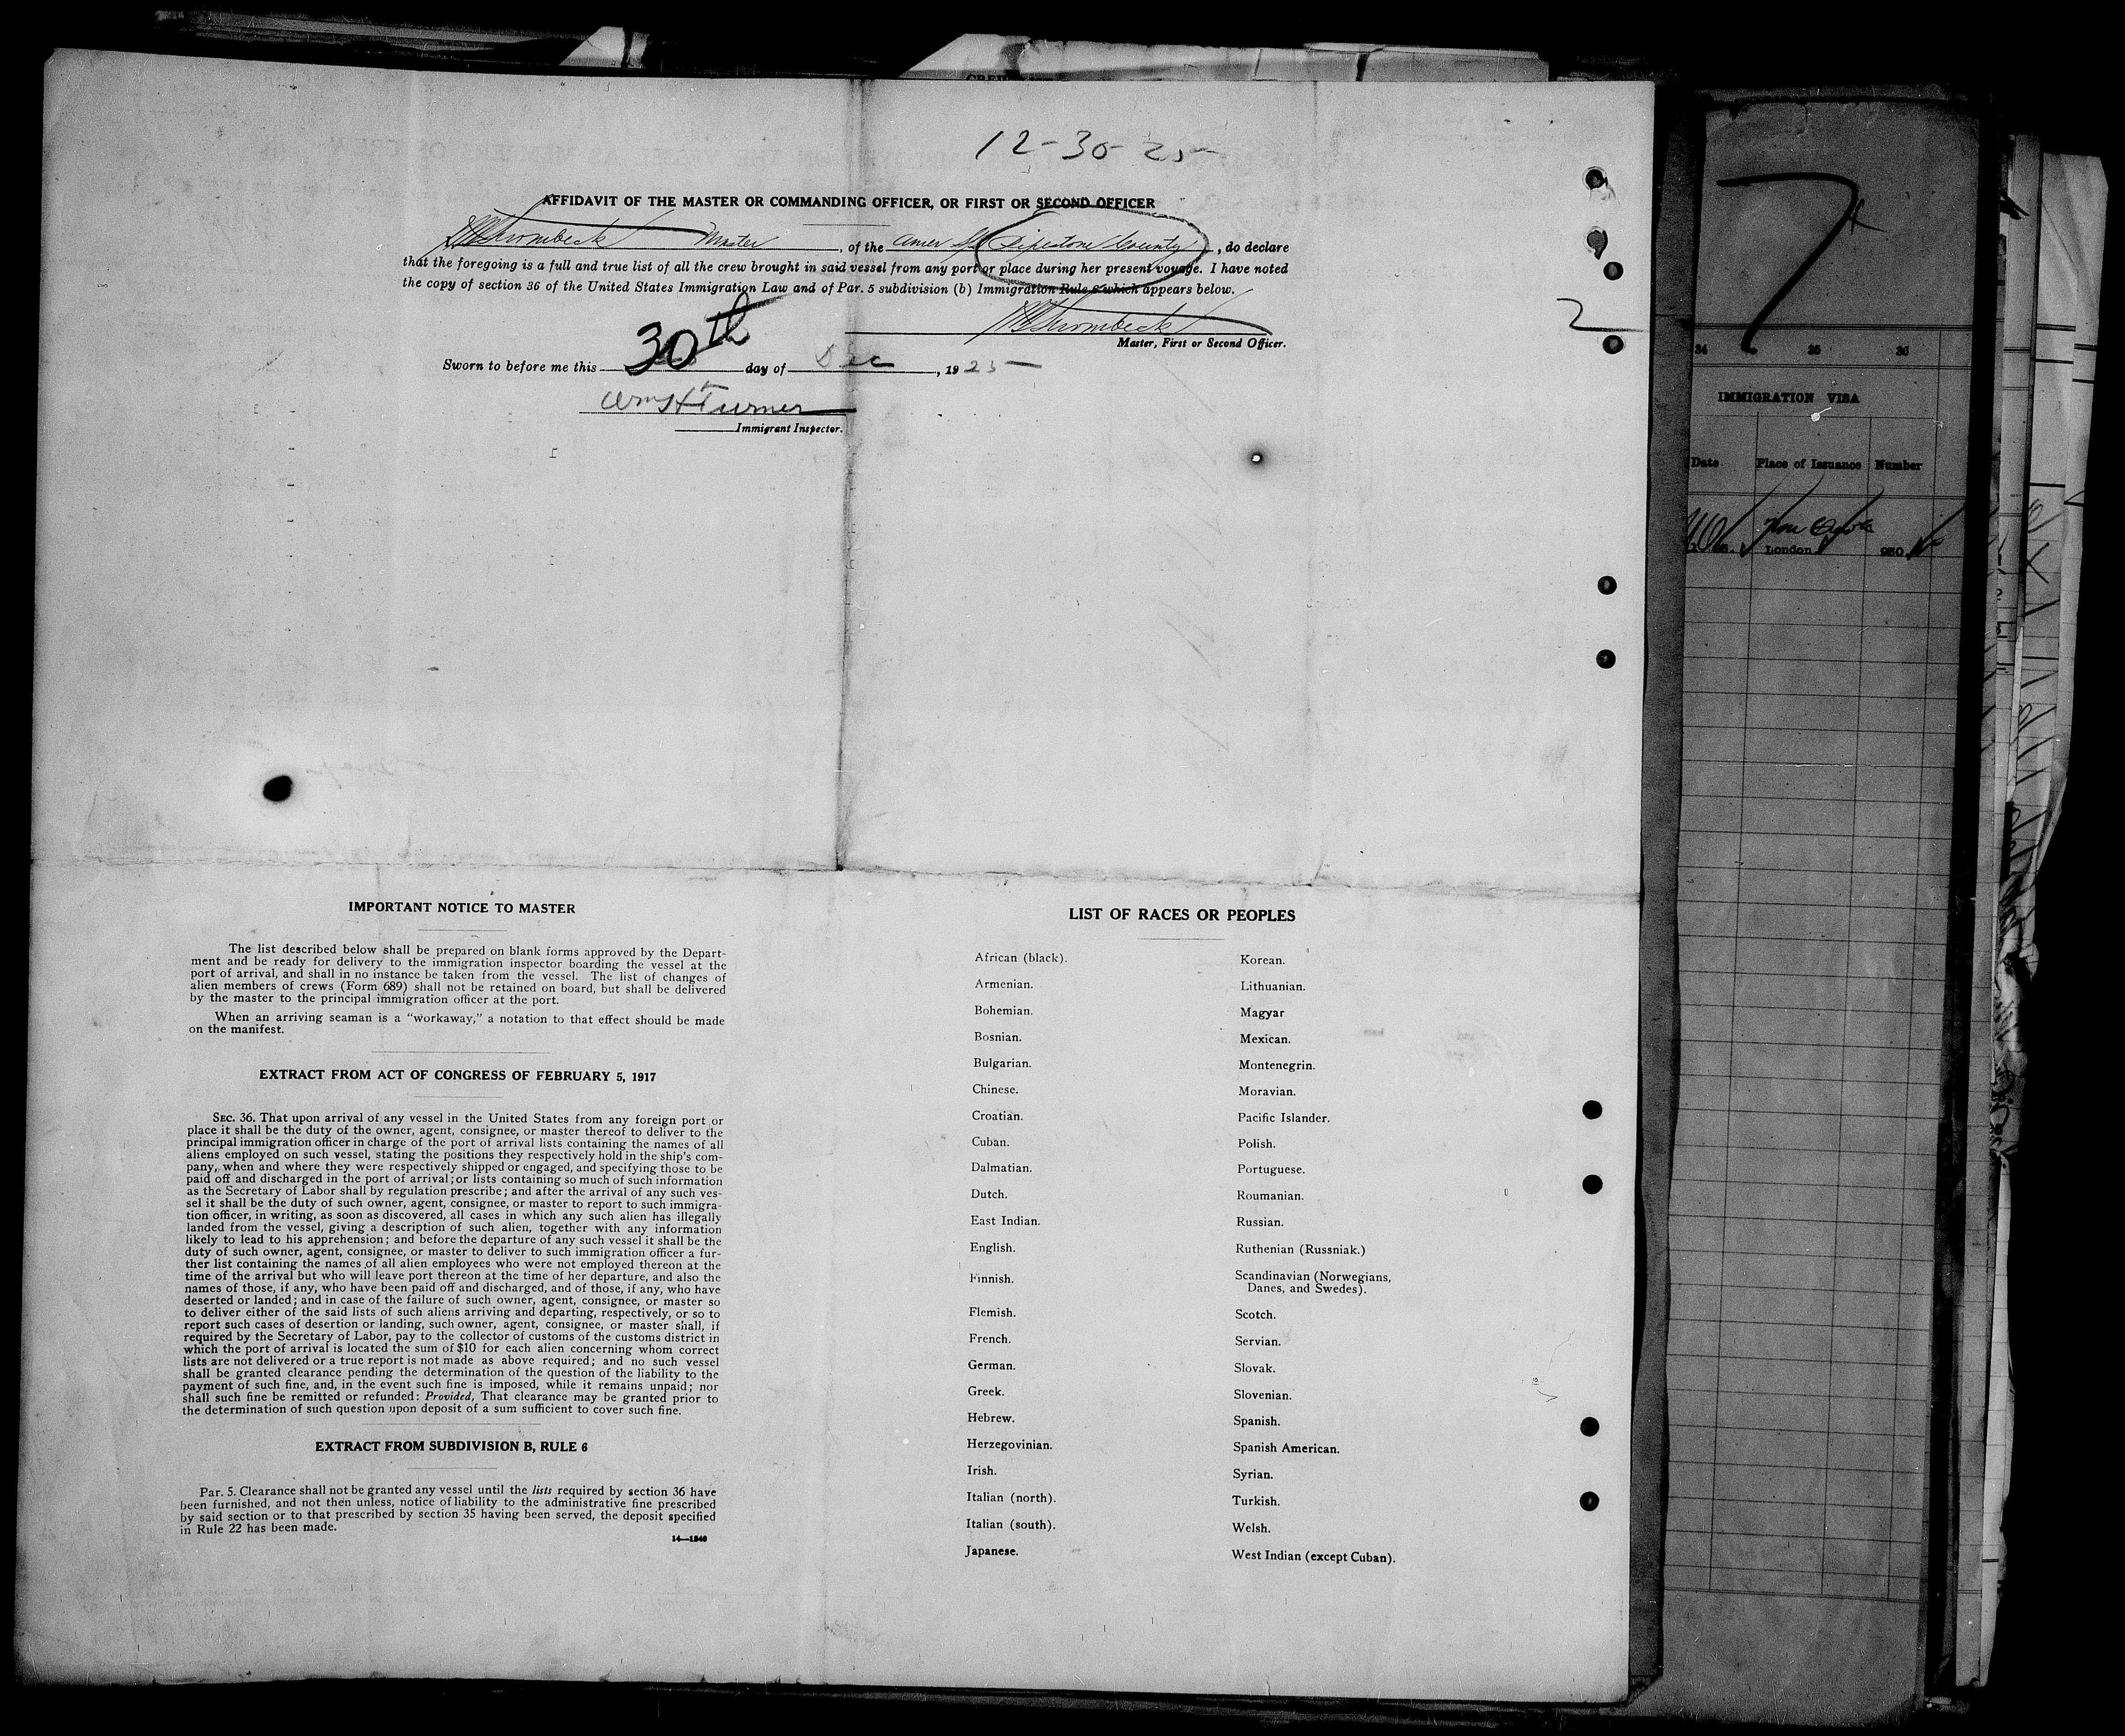 12-30-25
AFFIDAVIT OF THE MASTER OR COMMANDING OFFICER, OR FIRST OR SECOND OFFICER
Master, of the Amer SS Pipestone County, do declare
that the foregoing is a full and true list of all the crew brought in said vessel from any port or place during her present voyage. I have noted
the copy of section 36 of the United States Immigration Law and of Par. 5 subdivision (b) Immigration Rule 6 which appears below.
Master, First or Second Officer.
Sworn to before me this 30th day of Dec, 1925
Wm H Turner
Immigrant Inspector.
IMPORTANT NOTICE TO MASTER
The list described below shall be prepared on blank forms approved by the Depart-
ment and be ready for delivery to the immigration inspector boarding the vessel at the
port of arrival, and shall in no instance be taken from the vessel. The list of changes of
alien members of crews (Form 689) shall not be retained on board, but shall be delivered
by the master to the principal immigration officer at the port.
When an arriving seaman is a "workaway," a notation to that effect should be made
on the manifest.
EXTRACT FROM ACT OF CONGRESS OF FEBRUARY 5, 1917
SEC. 36. That upon arrival of any vessel in the United States from any foreign port or
place it shall be the duty of the owner, agent, consignee, or master thereof to deliver to the
principal immigration officer in charge of the port of arrival lists containing the names of all
aliens employed on such vessel, stating the positions they respectively hold in the ship's com-
pany, when and where they were respectively shipped or engaged, and specifying those to be
paid off and discharged in the port of arrival; or lists containing so much of such information
as the Secretary of Labor shall by regulation prescribe; and after the arrival of any such ves-
sel it shall be the duty of such owner, agent, consignee, or master to report to such immigra-
tion officer, in writing, as soon as discovered, all cases in which any such alien has illegally
landed from the vessel, giving a description of such alien, together with any information
likely to lead to his apprehension; and before the departure of any such vessel it shall be the
duty of such owner, agent, consignee, or master to deliver to such immigration officer a fur-
ther list containing the names of all alien employees who were not employed thereon at the
time of the arrival but who will leave port thereon at the time of her departure, and also the
names of those, if any, who have been paid off and discharged, and of those, if any, who have
deserted or landed; and in case of the failure of such owner, agent, consignee, or master so
to deliver either of the said lists of such aliens arriving and departing, respectively, or so to
report such cases of desertion or landing, such owner, agent, consignee, or master shall, if
required by the Secretary of Labor, pay to the collector of customs of the customs district in
which the port of arrival is located the sum of $10 for each alien concerning whom correct
lists are not delivered or a true report is not made as above required; and no such vessel
shall be granted clearance pending the determination of the question of the liability to the
payment of such fine, and, in the event such fine is imposed, while it remains unpaid; nor
shall such fine be remitted or refunded: Provided, That clearance may be granted prior to
the determination of such question upon deposit of a sum sufficient to cover such fine.
EXTRACT FROM SUBDIVISION B, RULE 6
Par. 5. Clearance shall not be granted any vessel until the lists required by section 36 have
been furnished, and not then unless, notice of liability to the administrative fine prescribed
by said section or to that prescribed by section 35 having been served, the deposit specified
in Rule 22 has been made.
14—1546
LIST OF RACES OR PEOPLES
African (black).
Armenian.
Bohemian.
Bosnian.
Bulgarian.
Chinese.
Croatian.
Cuban.
Dalmatian.
Dutch.
East Indian.
English.
Finnish.
Flemish.
French.
German.
Greek.
Hebrew.
Herzegovinian.
Irish.
Italian (north).
Italian (south).
Japanese.
Korean.
Lithuanian.
Magyar
Mexican.
Montenegrin.
Moravian.
Pacific Islander.
Polish.
Portuguese.
Roumanian.
Russian.
Ruthenian (Russniak.)
Scandinavian (Norwegians,
Danes, and Swedes).
Scotch.
Servian.
Slovak.
Slovenian.
Spanish.
Spanish American.
Syrian.
Turkish.
Welsh.
West Indian (except Cuban).
2
7
34 35 36
IMMIGRATION VISA
Date Place of Issuance Number
London 930